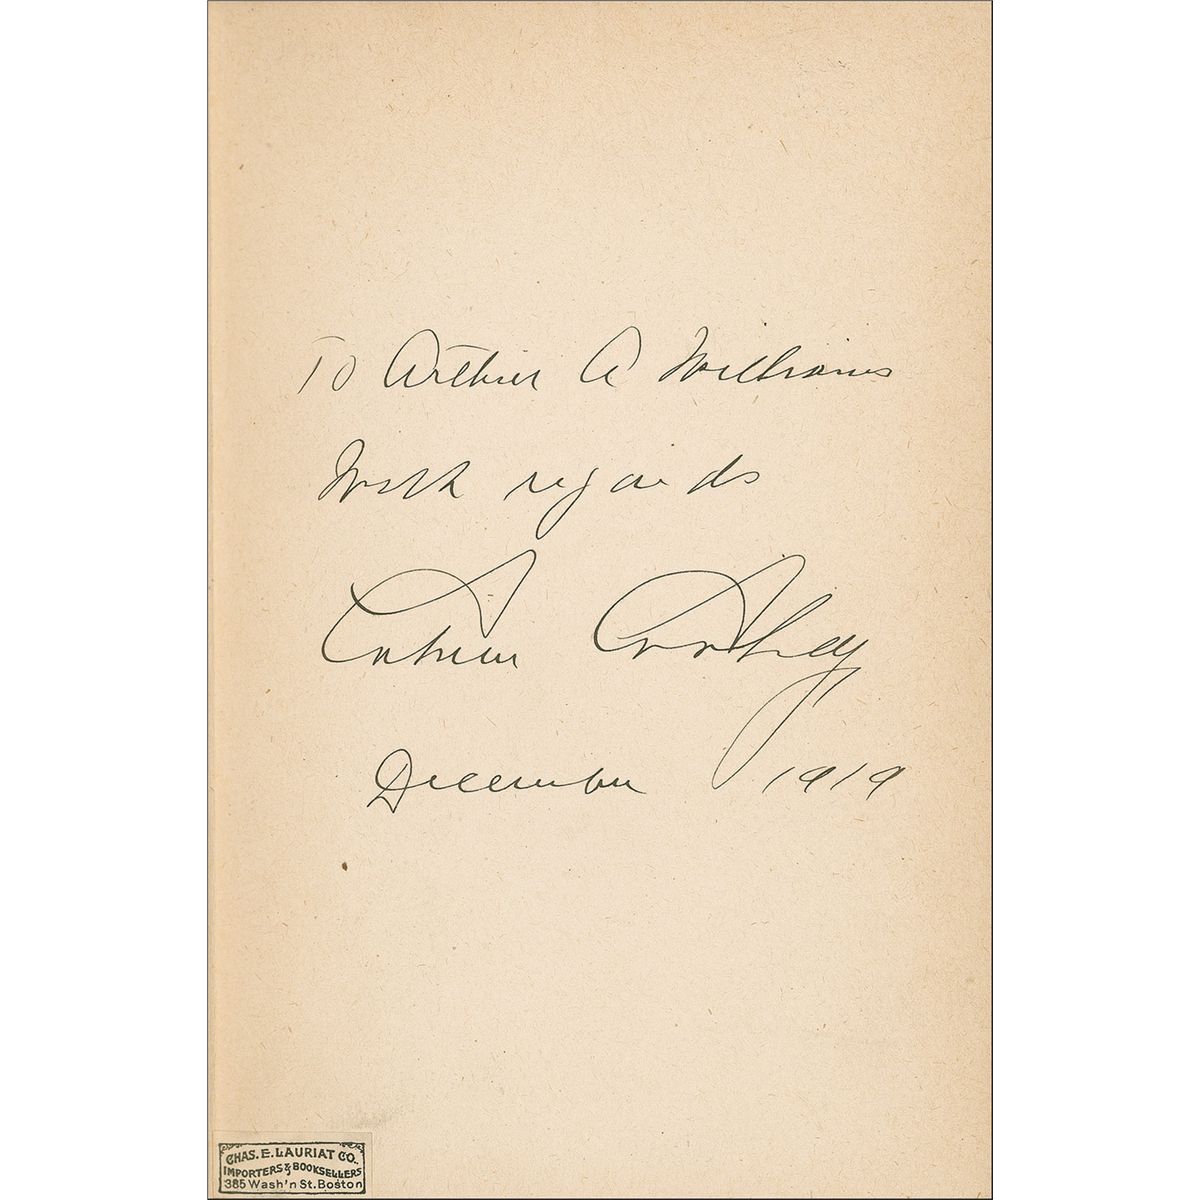 To Arthur A Williams
With regards
Calvin Coolidge
December 1919
CHAS. E. LAURIAT CO.
IMPORTERS & BOOKSELLERS
385 Wash'n St. Boston